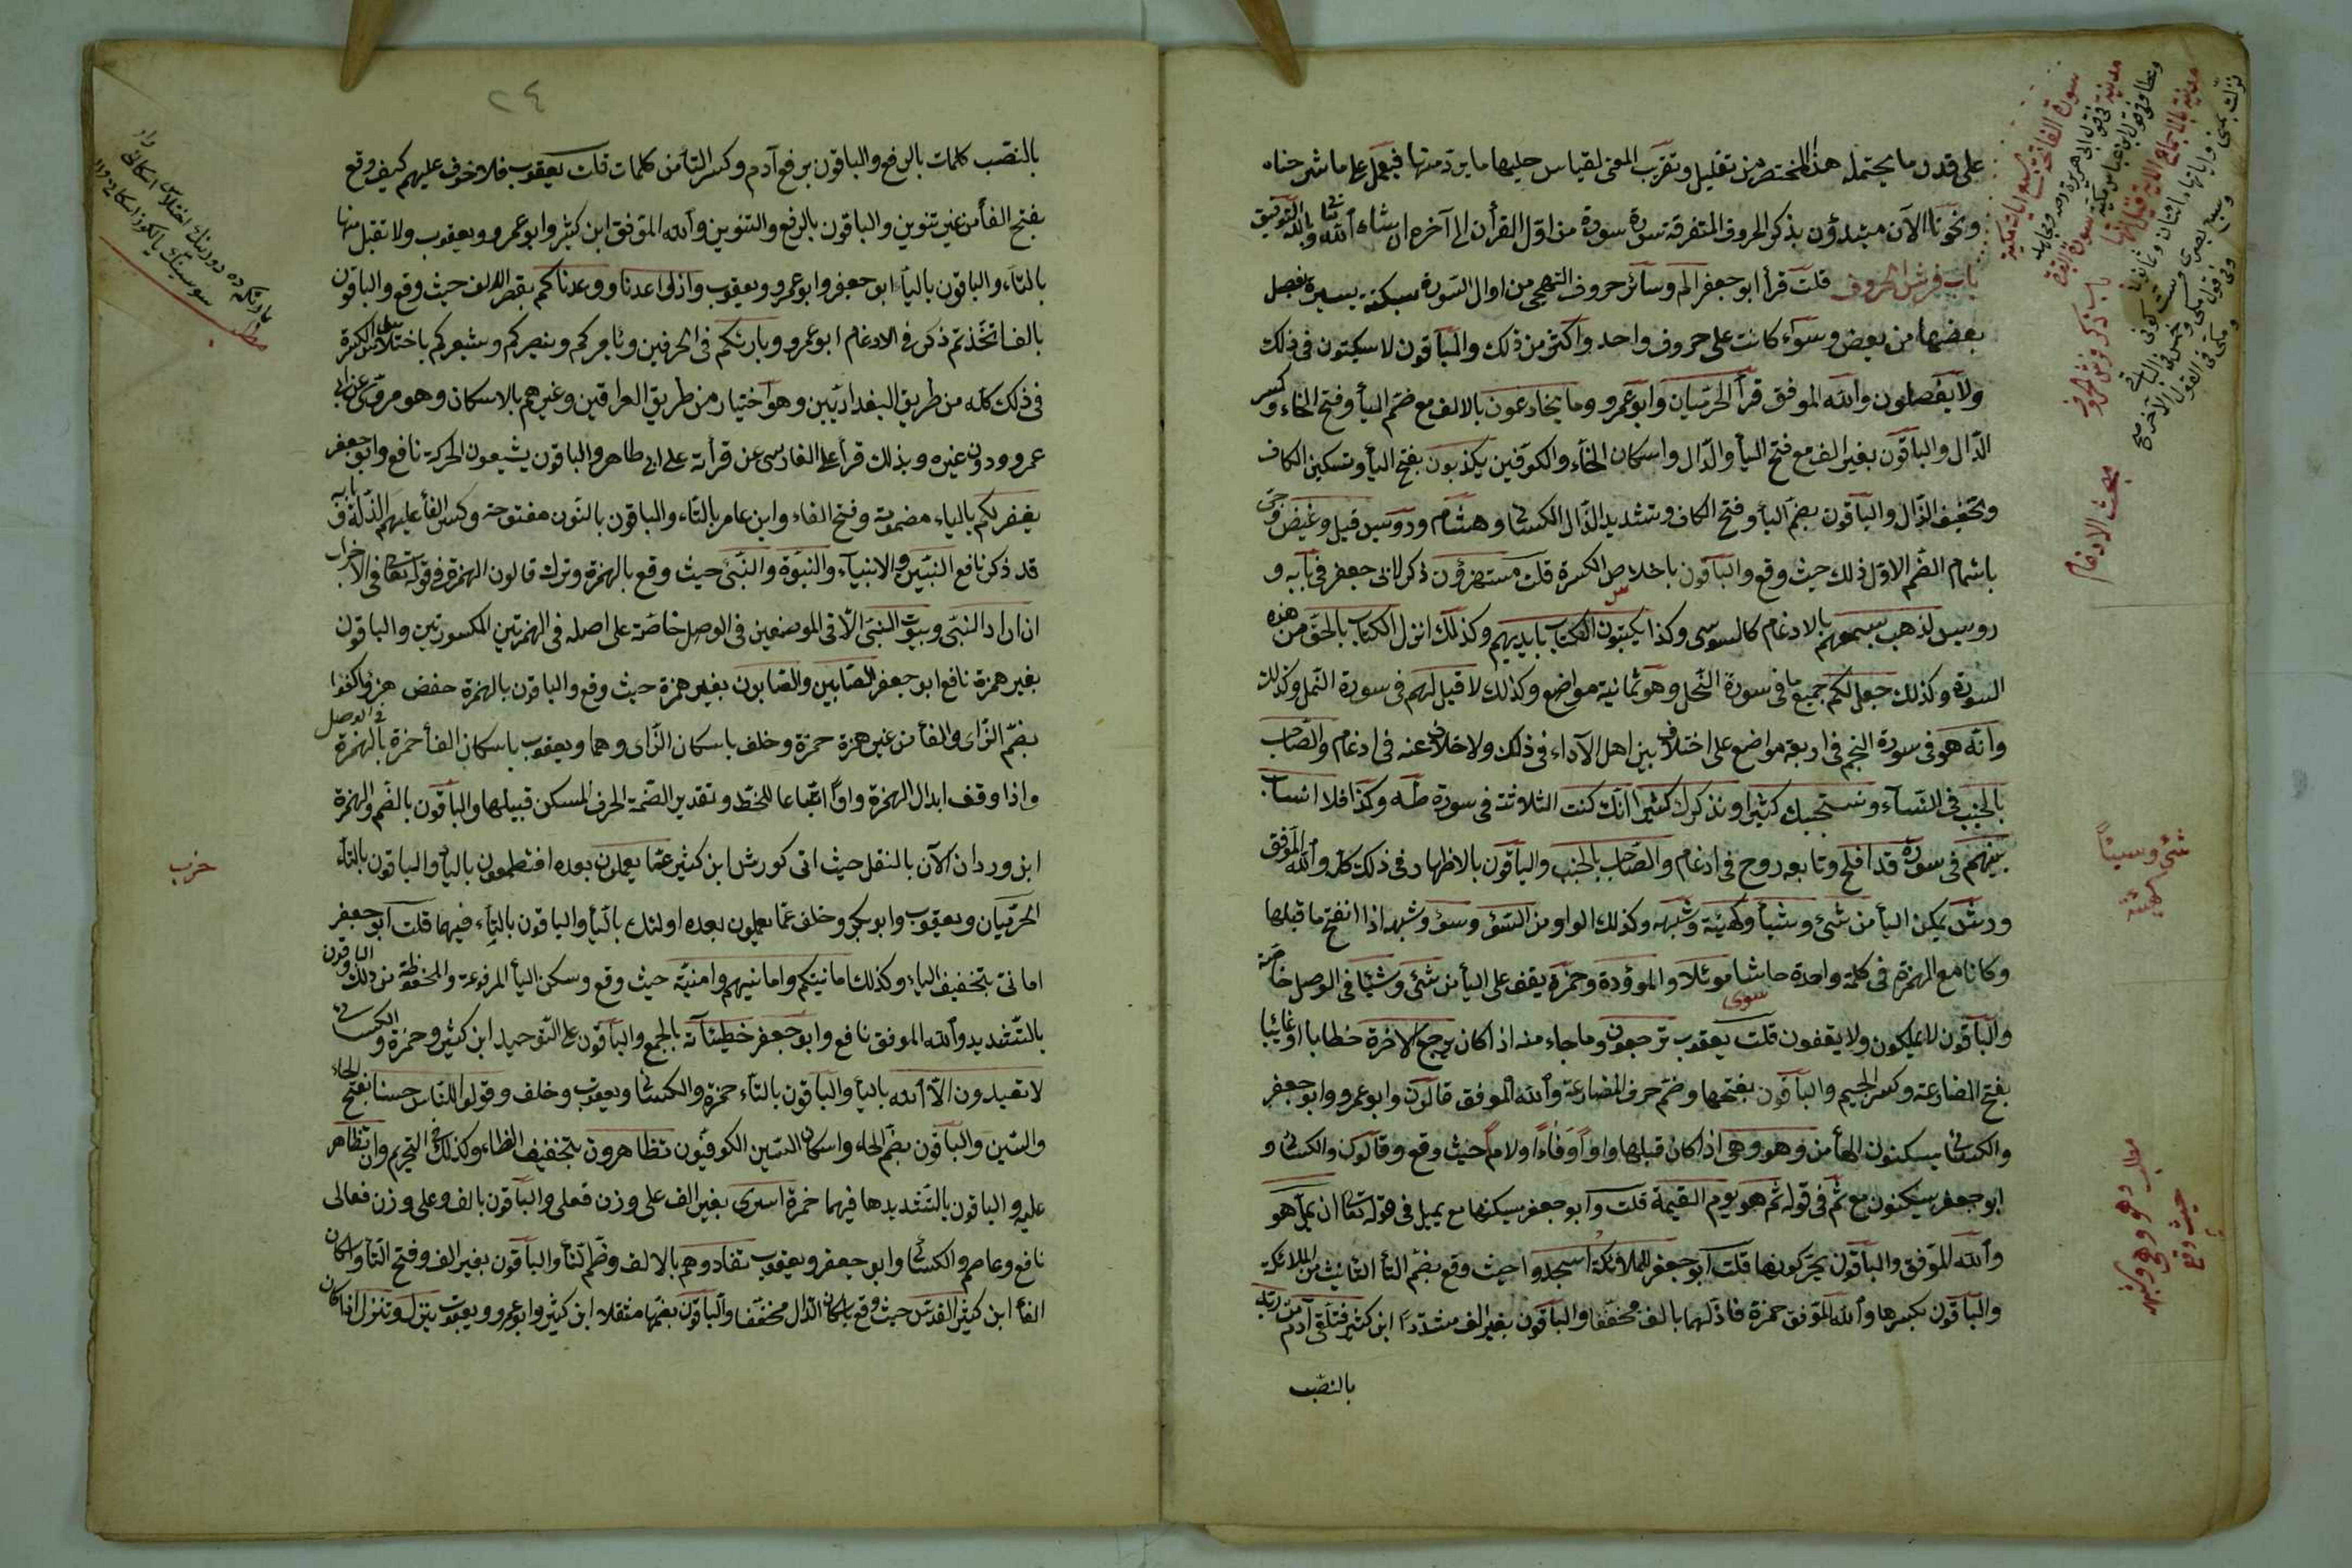 على قدر ما يحتمله هذا المختصر من تقليل وتقريب المعنى لقياس عليها ما يرد منها فيعمل على ما شرحناه
ونحو نا الآن مبتدؤن بذكر الحروف المتفرقة سورة سورة من اول القرأن الى آخره ان شاء الله تعالى وبالله التوفيق
باب فرش الحروف قلت قرأ ابو جعفر الم وسائر حروف التهجي من اوال السورة بسكتة يسيرة يفصل
بعضها من بعض وسوآء كانت على حروف واحد واكثر من ذلك والباقون لا يسكتون في ذلك
ولا يفصلون والله الموفق قرأ الحرميان وابو عمرو وما يخادعون بالالف مع ضم اليأ وفتح الخاء وكسر
الدال والباقون بغير الف مع فتح اليأ والدال واسكان الخاء والكوفين يكذبون بفتح اليأ وتسكين الكاف
وتخفيف الذال والباقون بضم اليأ وفتح الكاف وتشديد الذال الكسائى وهشام ورويس قيل وغيض وجئ
باشمام الضم الاول ذلك حيث وقع والباقون باخلاص الكسرة قلت مستهزؤن ذكر لابى جعفر في بابه و
رويس لذهب بسمعهم بالادغام كالسوسى وكذا يكتبون الكتاب بايديهم وكذلك انزل الكتاب بالحق من هذه
السورة وكذلك جعل لكم جميع ما في سورة النحل وهو ثمانية مواضع وكذلك لا قبل لهم في سورة النمل وكذلك
وانه هو في سورة النجم في اربعة مواضع على اختلاف بين اهل الآداء في ذلك ولا خلاف عنه في ادغام والصاحب
بالجنب في النسآء ونسبحك كثيرا ونذكرك كثيرا انك كنت الثلاثة في سورة طه وكذا فلا انساب
بينهم في سورة قد افلح وتابعه روح في ادغام والصاحب بالجنب والباقون بالاظهار في ذلك كله والله الموفق
ورش يمكن اليأ من شئ وشيأ وكهيئة وشبهه وكذلك الواو من السوء وسوء وشبهه اذا انفتح ما قبلها
وكانا مع الهمزة في كلمة واحدة حاشا موئلا والموؤدة وحمزة يقف على اليأ من شئ وشيئا في الوصل خاصة
والباقون لا يمكون ولا يقفون قلت يعقوب ترجعون وما جاء منه اذا كان من رجع الاخرة خطابا او غائبا
بفتح المضارعة وكسر الجيم والباقون بفتحها وضم حرف المضارعة والله الموفق قالون وابو عمرو وابو جعفر
والكسائى يسكنون الهأ من وهو وهى اذا كان قبلها واوا وفاءا ولاما حيث وقع وقالون والكسائى و
ابو جعفر يسكنون مع ثم في قوله ثم هو يوم القيمة قلت وابو جعفر يسكنها مع يمل في قوله تعالى ان يمل هو
والله الموفق والباقون يحركونها قلت ابو جعفر للملائكة اسجدوا حيث وقع بضم التأ التانيث من الملائكة
والباقون بكسرها والله الموفق حمزة فاذلهما بالف مخففا والباقون بغير الف مشددا ابن كثير فتلقى آدم من ربه
بالنصب
باب ذكر فرش الحروف
مبحث الادغام
شئ وسيئا
كهيئة
مطلب وهو وهى وشبهه
حيث وقع
٢٤
بالنصب كلمات بالرفع والباقون برفع آدم وكسر التأ من كلمات قلت يعقوب فلا خوف عليهم كيف وقع
بفتح الفأ من غير تنوين والباقون بالرفع والتنوين والله الموفق ابن كثير وابو عمرو ويعقوب ولا تقبل منها
بالتاء والباقون باليأ ابو جعفر وابو عمرو ويعقوب واذ اعدنا ووعدناكم بقصر الالف حيث وقع والباقون
بالف اتخذتم ذكر في الادغام ابو عمرو وبارئكم في الحرفين ويأمركم وينصركم ويشعركم باختلاس الكسرة
في ذلك كله من طريق البغداديين وهو اختيار من طريق العراقين وغيرهم بالاسكان وهو مروى عن ابى
عمرو ودون غيره وبذلك قرأ على الفارسى عن قرأته على ابى طاهر والباقون يشبعون الحركة نافع وابو جعفر
يغفر لكم بالياء مضمومة وفتح الفاء وابن عامر بالتاء والباقون بالنون مفتوحة وكسر الفأ عليهم الذلة في بابه
قد ذكر نافع النبيين والانبيآء والنبوة والنبئ حيث وقع بالهمزة وترك قالون الهمزة في قوله تعالى في الاحزاب
ان اراد النبى وبيوت النبى الا في الموضعين في الوصل خاصة على اصله في الهمزتين المكسورتين والباقون
بغير همزة نافع ابو جعفر الصابين والصابون بغير همزة حيث وقع والباقون بالهمزة حفص هزوا وكفوا
بضم الزاى والفأ من غير همزة حمزة وخلف باسكان الزاى وهما ويعقوب باسكان الفأ حمزة بالهمزة في الوصل
واذا وقف ابدال الهمزة واوا اتباعا للخط وتقدير الضمة الحرف المسكن قبلها والباقون بالضم والهمزة
ابن وردان الآن بالنقل حيث اتى كورش ابن كثير عما يعملون بعده افتطمعون باليأ والباقون بالتاء
الحرميان ويعقوب وابو بكر وخلف عما يعملون بعده اولئك باليأ والباقون بالتاء فيهما قلت ابو جعفر
امانى بتخفيف الياء وكذلك امانيتكم وامانيهم وامنيته حيث وقع وسكن اليأ المرفوعة والمخفوظة من ذلك والباقون
بالتشديد والله الموفق نافع وابو جعفر خطيئاته بالجمع والباقون على التوحيد ابن كثير وحمزة والكسائى
لا تعبدون الا الله باليأ والباقون بالتاء حمزة والكسائى ويعقوب وخلف وقولوا للناس حسنا بفتح الحاء
والسين والباقون بضم الحاء واسكان السين الكوفيون تظاهرون بتخفيف الظاء وكذلك في التحريم وان تظاهر
عليه والباقون بالتشديدها فيهما حمزة اسرى بغير الف على وزن فعلى والباقون بالف وعلى وزن فعالى
نافع وعاصم والكسائى وابو جعفر ويعقوب تفادوهم بالالف وضم التأ والباقون بغير الف وفتح التأ واسكان
الفأ ابن كثير القدس حيث وقع باسكان الدال مخففا والباقون بضمها مثقلا ابن كثير وابو عمرو ويعقوب ينزل وتنزل اذا كان
حزب